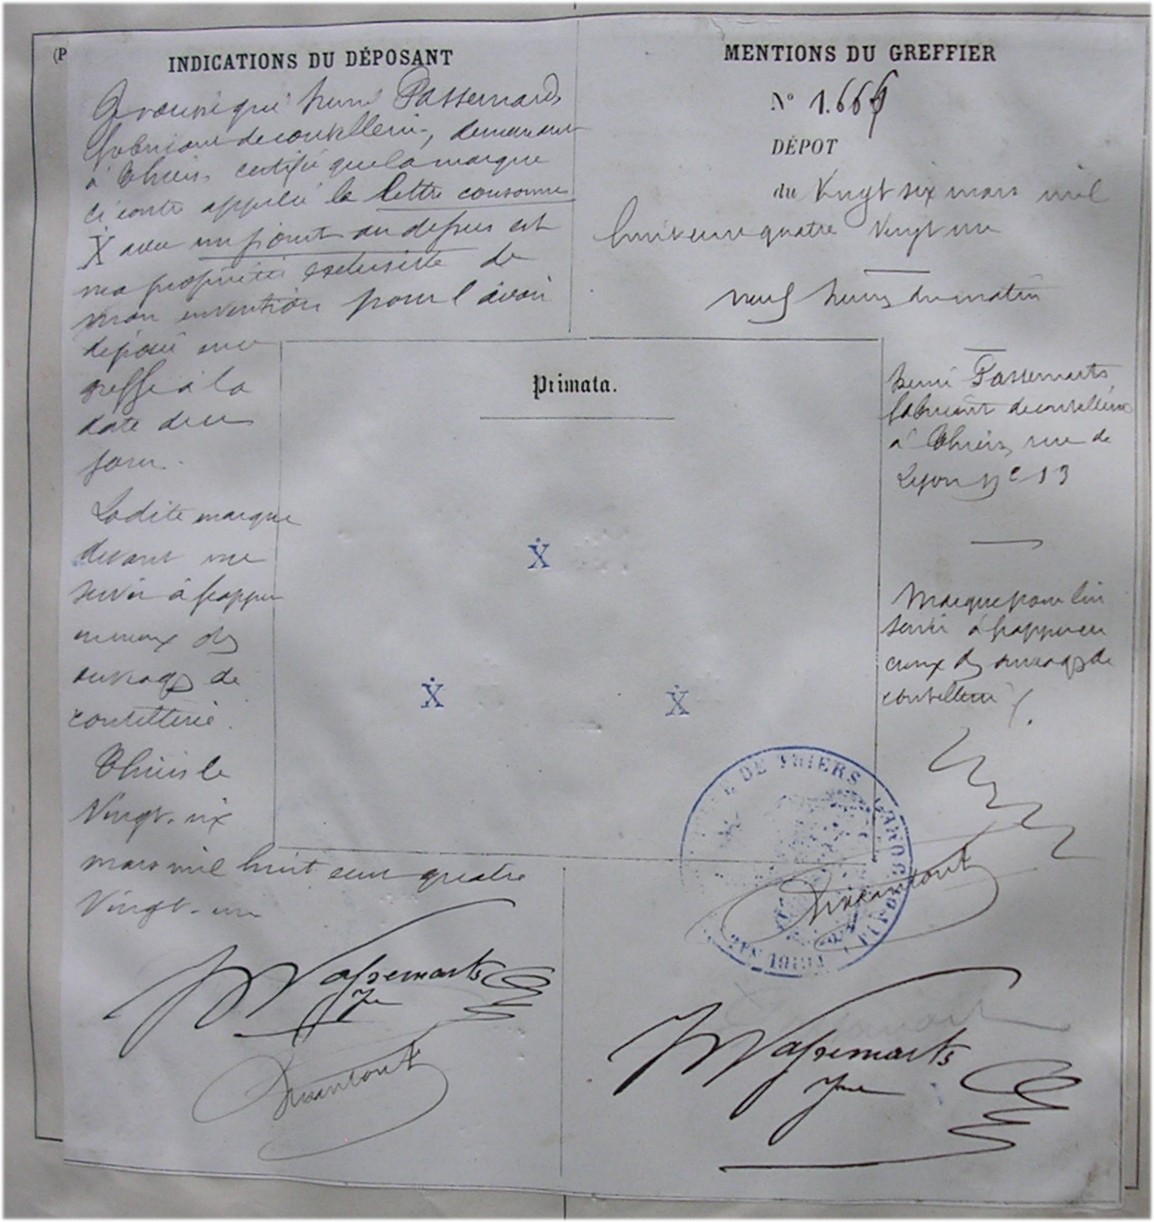 (P
INDICATIONS DU DÉPOSANT
henri Passemards
fabricant de coutellerie, demeurant
à Thiers certifie que la marque
ci contre appelée la lettre consonne
X avec un point au dessus est
ma propriété exclusive de
mon invention pour l'avoir
déposée au
greffe à la
date de ce
jour.
Ladite marque
devant me
servir à frapper
en creux des
ouvrages de
coutellerie.
Thiers le
Vingt-six
mars mil huit cent quatre
Vingt-un
Passemarts
Jne
Dissandout
MENTIONS DU GREFFIER
N° 1.666
DÉPOT
du Vingt six mars mil
huit cent quatre Vingt un
neuf heures du matin
Primata.
Ẋ
Ẋ
Ẋ
henri Passemarts
fabricant de coutellerie
à Thiers, rue de
Lyon n° 13
Marque pour lui
servir à frapper en
creux des ouvrages de
coutellerie
DE THIERS (PUY-DE-DOME)
TRIBUNAL
Passemarts
Jne